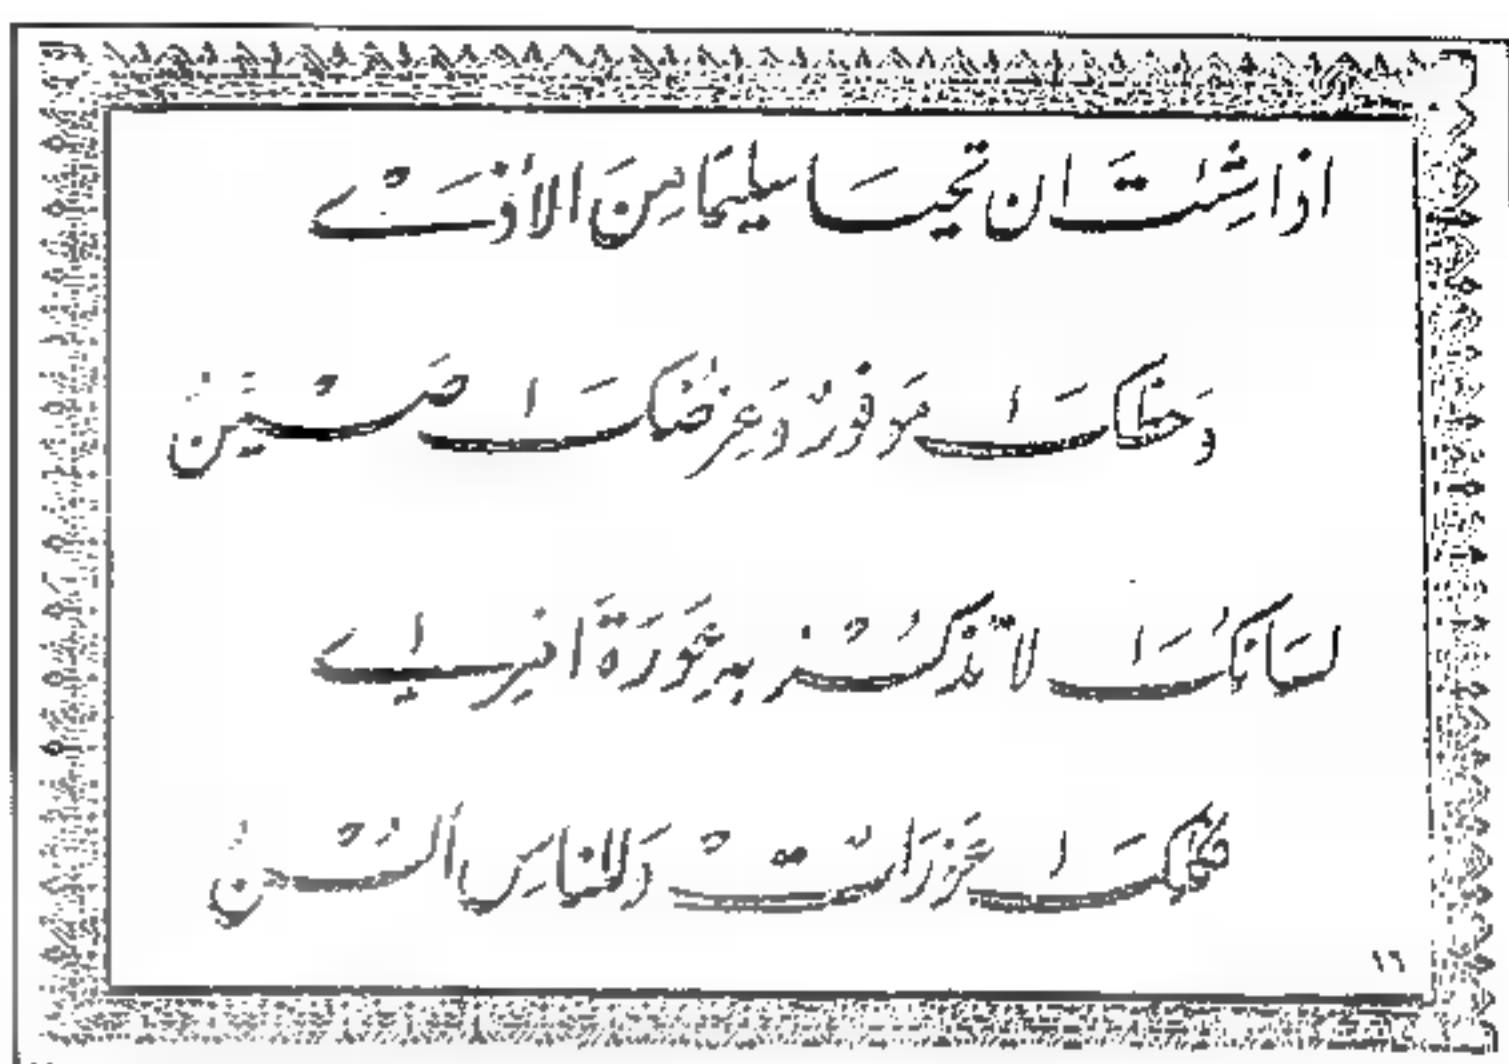 اذا شِئتَ ان تحيَا سليمًا مِنَ الاذَىٰ
وَحظكَ موفورٌ وَعِرضُكَ صَيّنُ
لسَانكُ لا تذكُرْ به عَورَةَ امرئ
فكلكَ عَوراتٌ وَللناسِ ألسُنُ
١٦